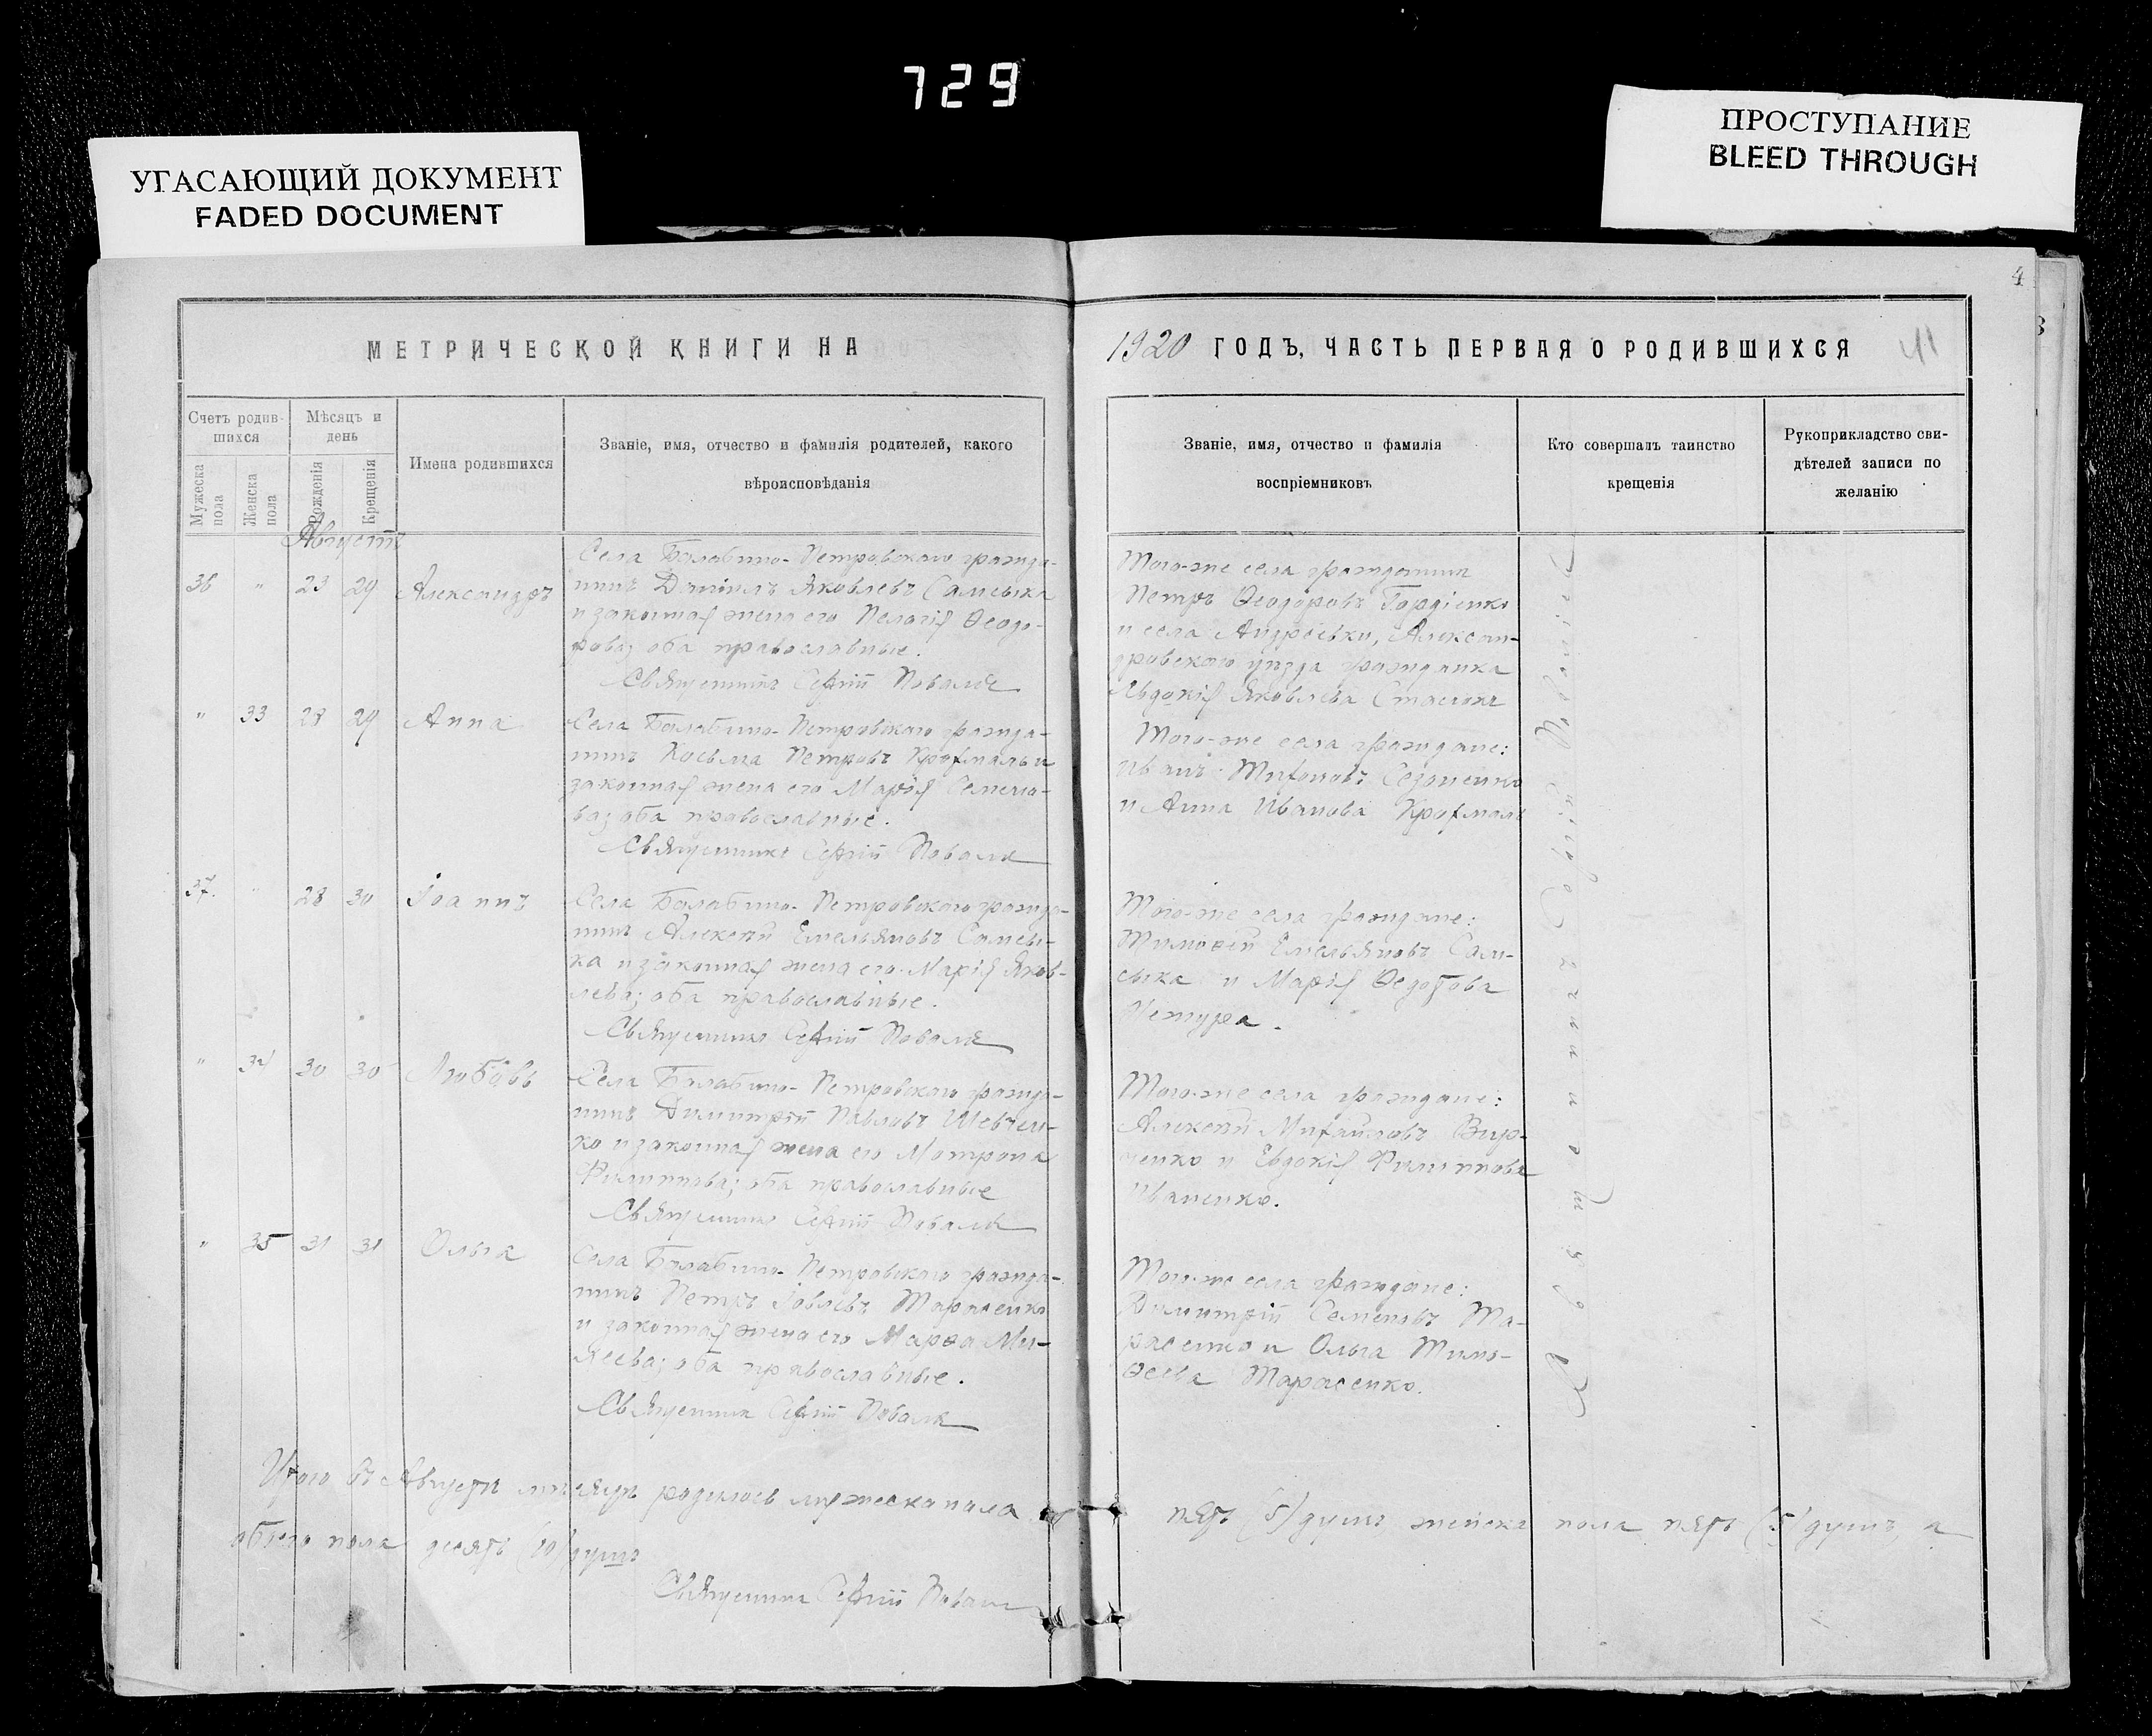 729
УГАСАЮЩИЙ ДОКУМЕНТ
FADED DOCUMENT
ПРОСТУПАНИЕ
BLEED THROUGH
4
МЕТРИЧЕСКОЙ КНИГИ НА
1920 ГОДЪ, ЧАСТЬ ПЕРВАЯ О РОДИВШИХСЯ
41
Счетъ родив-
шихся
Мужеска пола
Женска пола
Мѣсяцъ и
день
Рожденія
Крещенія
Имена родившихся
Званіе, имя, отчество и фамилія родителей, какого
вѣроисповѣданія
Званіе, имя, отчество и фамилія
воспріемниковъ
Кто совершалъ таинство
крещенія
Рукоприкладство сви-
дѣтелей записи по
желанію
Августъ
36 " 23 29 Александръ
Села Балабино-Петровскаго гражда-
нинъ Даніилъ Яковлевъ Самсыка
и законная жена его Пелагія Ѳеодо-
рова; оба православные.
Священникъ Сергій Поваля
Того-же села гражданинъ
Петръ Ѳеодоровъ Гордіенко
и села Андреевки, Алексан-
дровскаго уѣзда гражданка
Евдокія Яковлева
" 33 28 29 Анна
Села Балабино-Петровскаго гражда-
нинъ Косьма Петровъ Крохмаль и
законная жена его Марія Семено-
ва; оба православные.
Священникъ Сергій Поваля
Того-же села граждане:
Иванъ Тихоновъ
и Анна Иванова Крохмаль
37. " 28 30 Іоаннъ
Села Балабино-Петровскаго гражда-
нинъ Алексѣй Емельяновъ Самсы-
ка и законная жена его Марія Яков-
лева; оба православные.
Священникъ Сергій Поваля
Того-же села граждане:
Тимоѳей Емельяновъ Сам-
сыка и Марія Ѳедотова
" 34 30 30 Любовь
Села Балабино-Петровскаго гражда-
нинъ Димитрій Павловъ Шевчен-
ко и законная жена его Матрона
Филиппова; оба православные
Священникъ Сергій Поваля
Того-же села граждане:
Алексѣй Михайловъ
и Евдокія Филиппова
Иваненко.
" 35 31 31 Ольга
Села Балабино-Петровскаго гражда-
нинъ Петръ Іовлевъ Тарасенко
и законная жена его Марѳа
оба православные.
Священникъ Сергій Поваля
Того-же села граждане:
Димитрій Семеновъ Та-
расенко и Ольга Тимо-
ѳеева Тарасенко.
Итого въ Августѣ мѣсяцѣ родилось мужеска пола пять (5) душъ женска пола пять (5) душъ, а
обоего пола десять (10) душъ
Священникъ Сергій Поваля